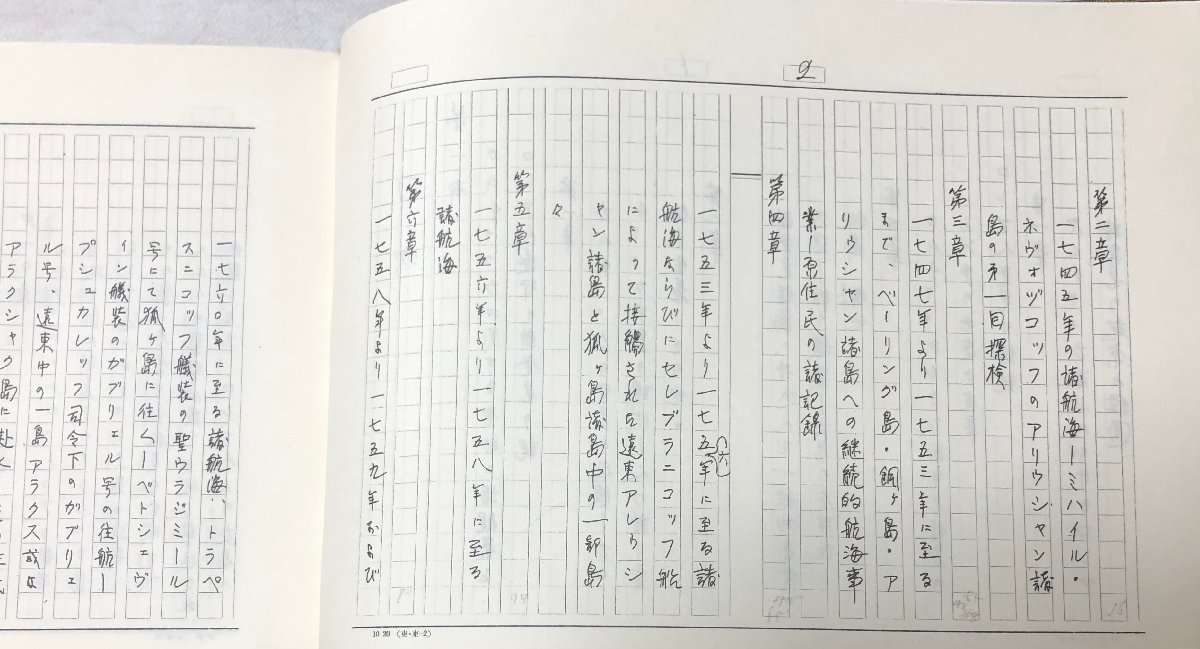 2
第二章
一七四五年の諸航海ーミハイル・
ネヴォヅコッフのアリウシャン諸
島の第一回探検
第三章
一七四七年より一七五三年に至る
まで、ベーリング島・銅ヶ島・ア
リウシャン諸島への継続的航海事
業ー原住民の諸記録
第四章
一七五三年より一七五六年に至る諸
航海ならびにセレブラニコッフ船
によって接觸された遠東アレウシ
ャン諸島と狐ヶ島諸島中の一部島
々
第五章
一七五六年より一七五八年に至る
諸航海
第六章
一七五八年より一七五九年および
10 20 (東・東-2)
一七六〇年に至る諸航海、トラペ
スニコッフ艤装の聖ウラジミール
号にて狐ヶ島に往くーベトシェヴ
ィン艤装のガブリェル号の往航ー
プシュカレッフ司令下のガブリェ
ル号、遠東中の一島アラクス或は
アラクシャク島に赴